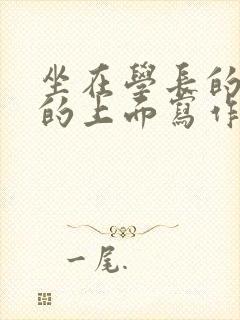 坐在學長的
的上而寫作
一尾.